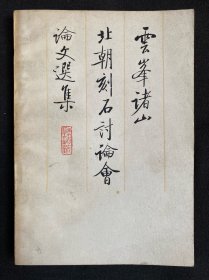 雲峯諸山
北朝刻石討論會
論文選集